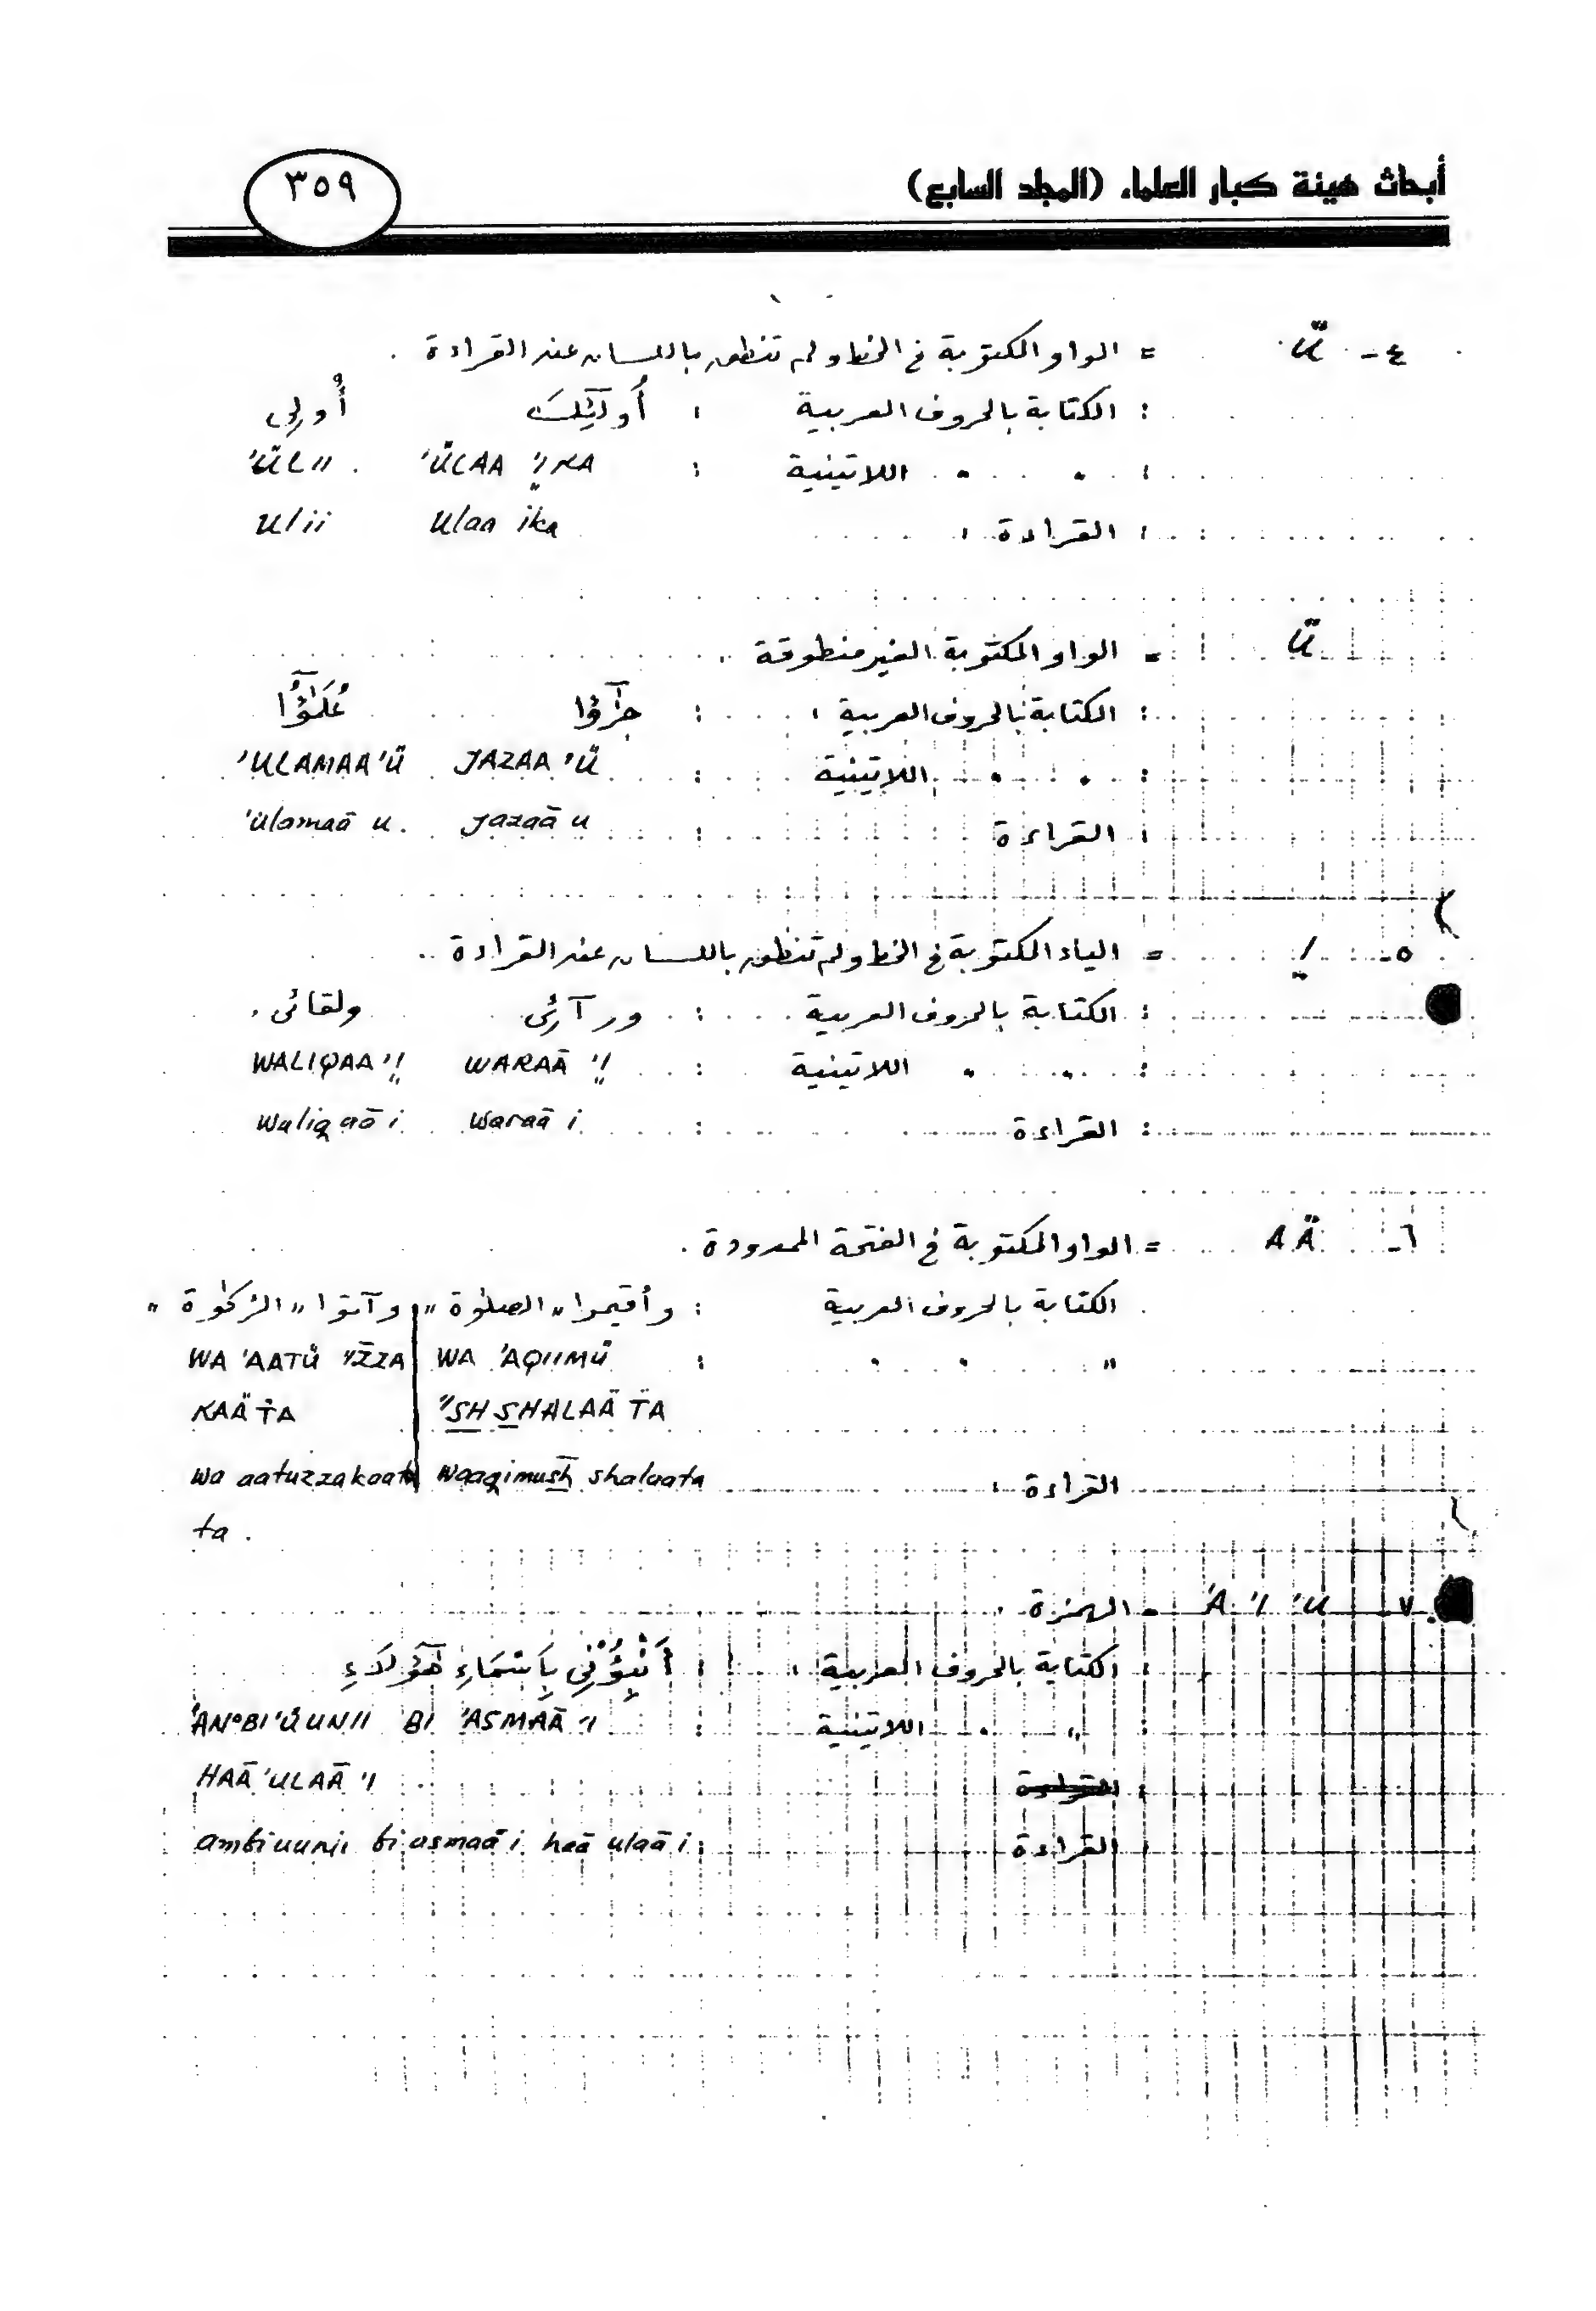 أبحاث هيئة كبار العلماء (المجلد السابع) ٣٥٩
٤- Ü = الواو المكتوبة في الخط ولم تنطق باللسان عند القراءة .
: الكتابة بالحروف العربية : أُولَٰٓئِكَ أُولِى
: " " اللاتينية : 'ÜLAA 'ỊKA 'ÜLII
: القراءة : ulaa ika ulii
Ü = الواو المكتوبة الغير منطوقة .
: الكتابة بالحروف العربية : جزٰٓؤا عُلَمَٰٓؤُا
: " " اللاتينية : JAZAA 'Ü 'ULAMAA'Ü
: القراءة : jazaā u 'ulamaā u
٥- Ị = الياء المكتوبة في الخط ولم تنطق باللسان عند القراءة .
: الكتابة بالحروف العربية : ورآئى ولقائى
: " " اللاتينية : WARAĀ 'Ị WALIQAA'Ị
: القراءة : waraā i waliqaā i
٦- AÄ = الواو المكتوبة في الفتحة الممدودة .
الكتابة بالحروف العربية : وأقيموا "الصلوٰة" وآتوا "الزكوٰة"
" " " : WA 'AQIIMÜ WA 'AATÜ "ZZA
"SH SHALAÄ ṪA KAÄṪA
القراءة : waaqimush shalaata wa aatuzzakaata
ta .
٧- 'A 'I 'U = الهمزة .
: الكتابة بالحروف العربية : أَنۢبِؤُنِى بِأَسْمَاءِ هَٰٓؤُلَاءِ
" " اللاتينية : 'AN°BI'ÜUNII BI 'ASMAĀ 'I
HAĀ 'ULAĀ 'I
: القراءة : ambiuunii bi asmaā i haā ulaā i